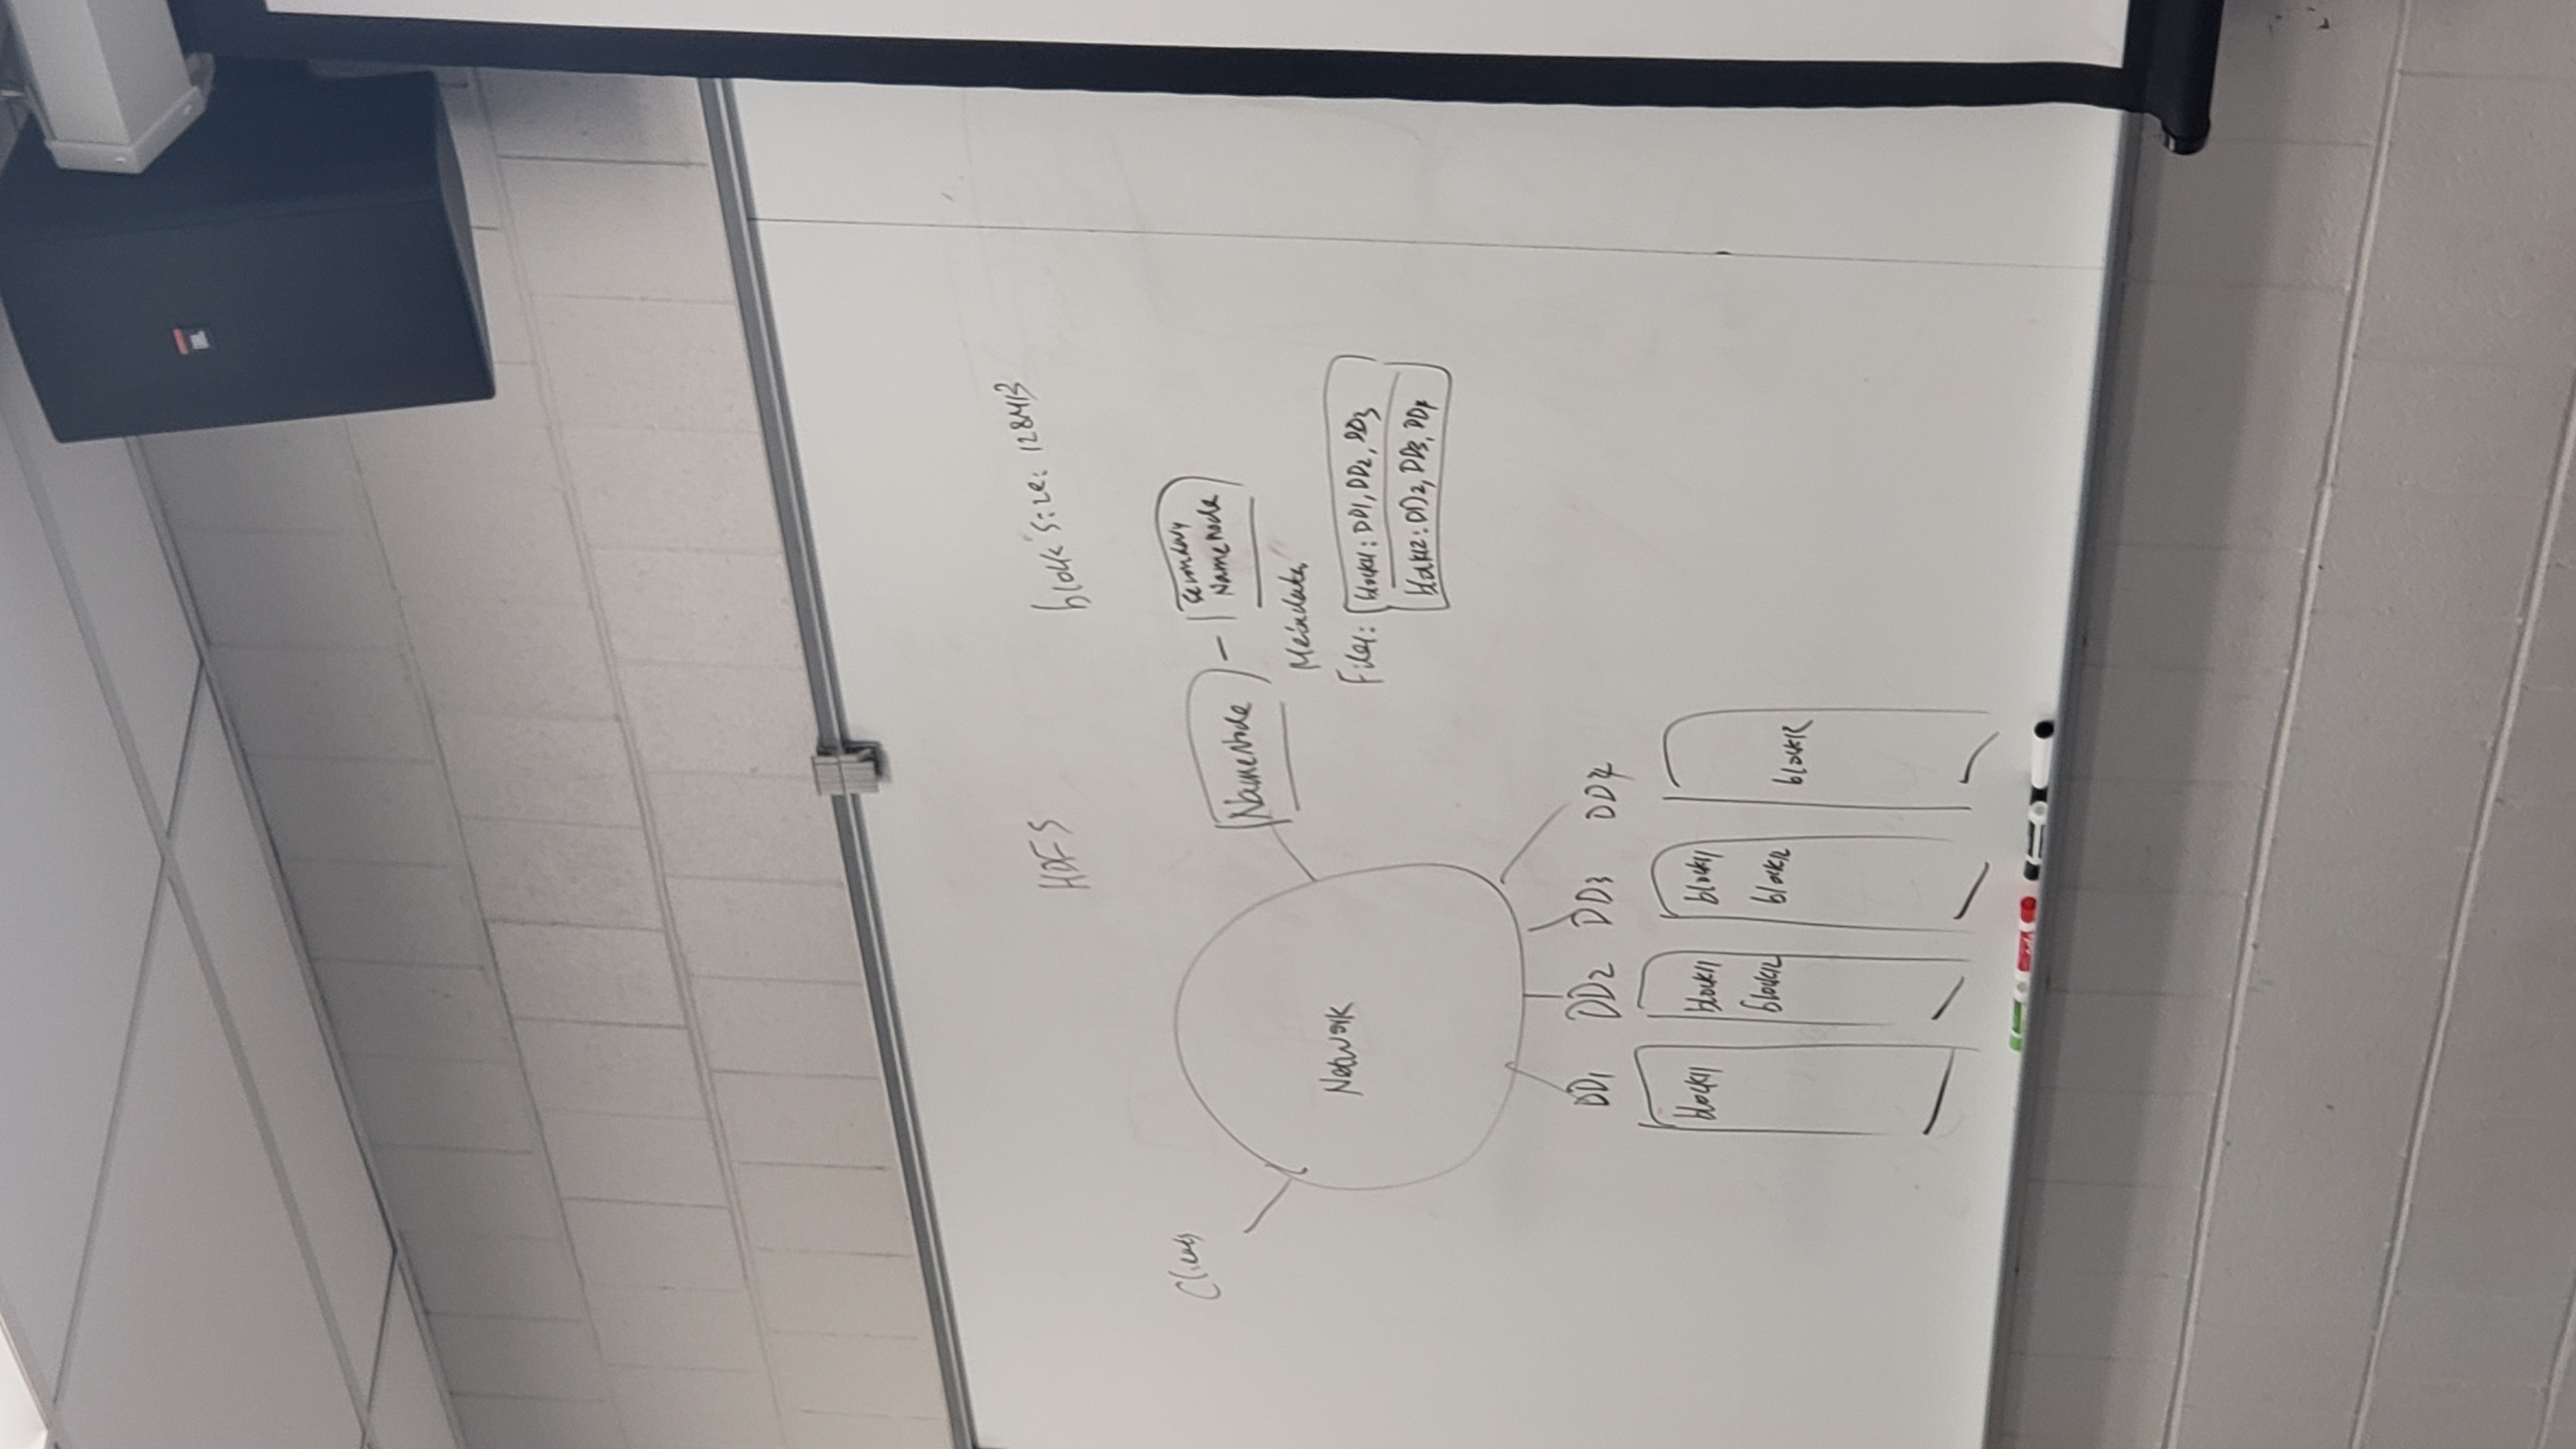 HDFS
block size: 128MB
Clients
Network
NameNode
Secondary
NameNode
Metadata
File1: block11: DD1, DD2, DD3
block12: DD2, DD3, DD4
DD1 DD2 DD3 DD4
block11 block11 block11
block12 block12 block12